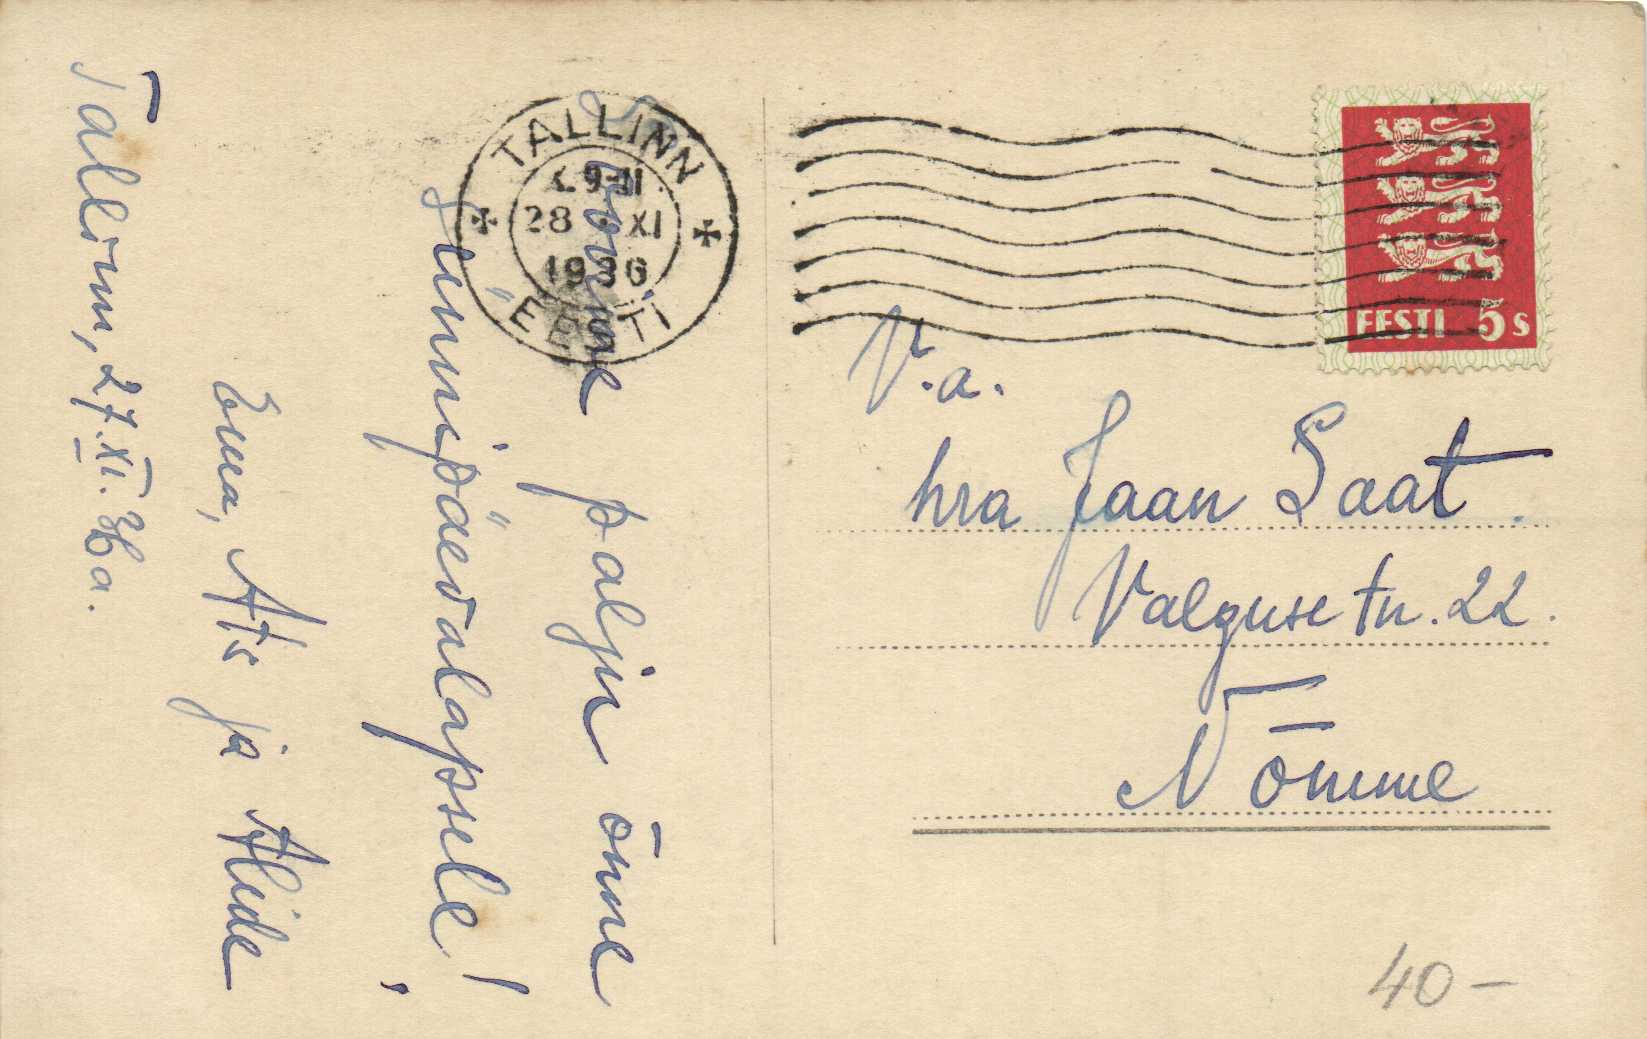 Soovime palju õnne
sünnipäevalapsele!
Ats ja Alide
Tallinn, 27.XI.36a.
TALLINN
9-11
28 XI
1936
EESTI
EESTI 5s
V.a.
hra Jaan Saat.
Valguse tn. 22.
Nõmme
40-